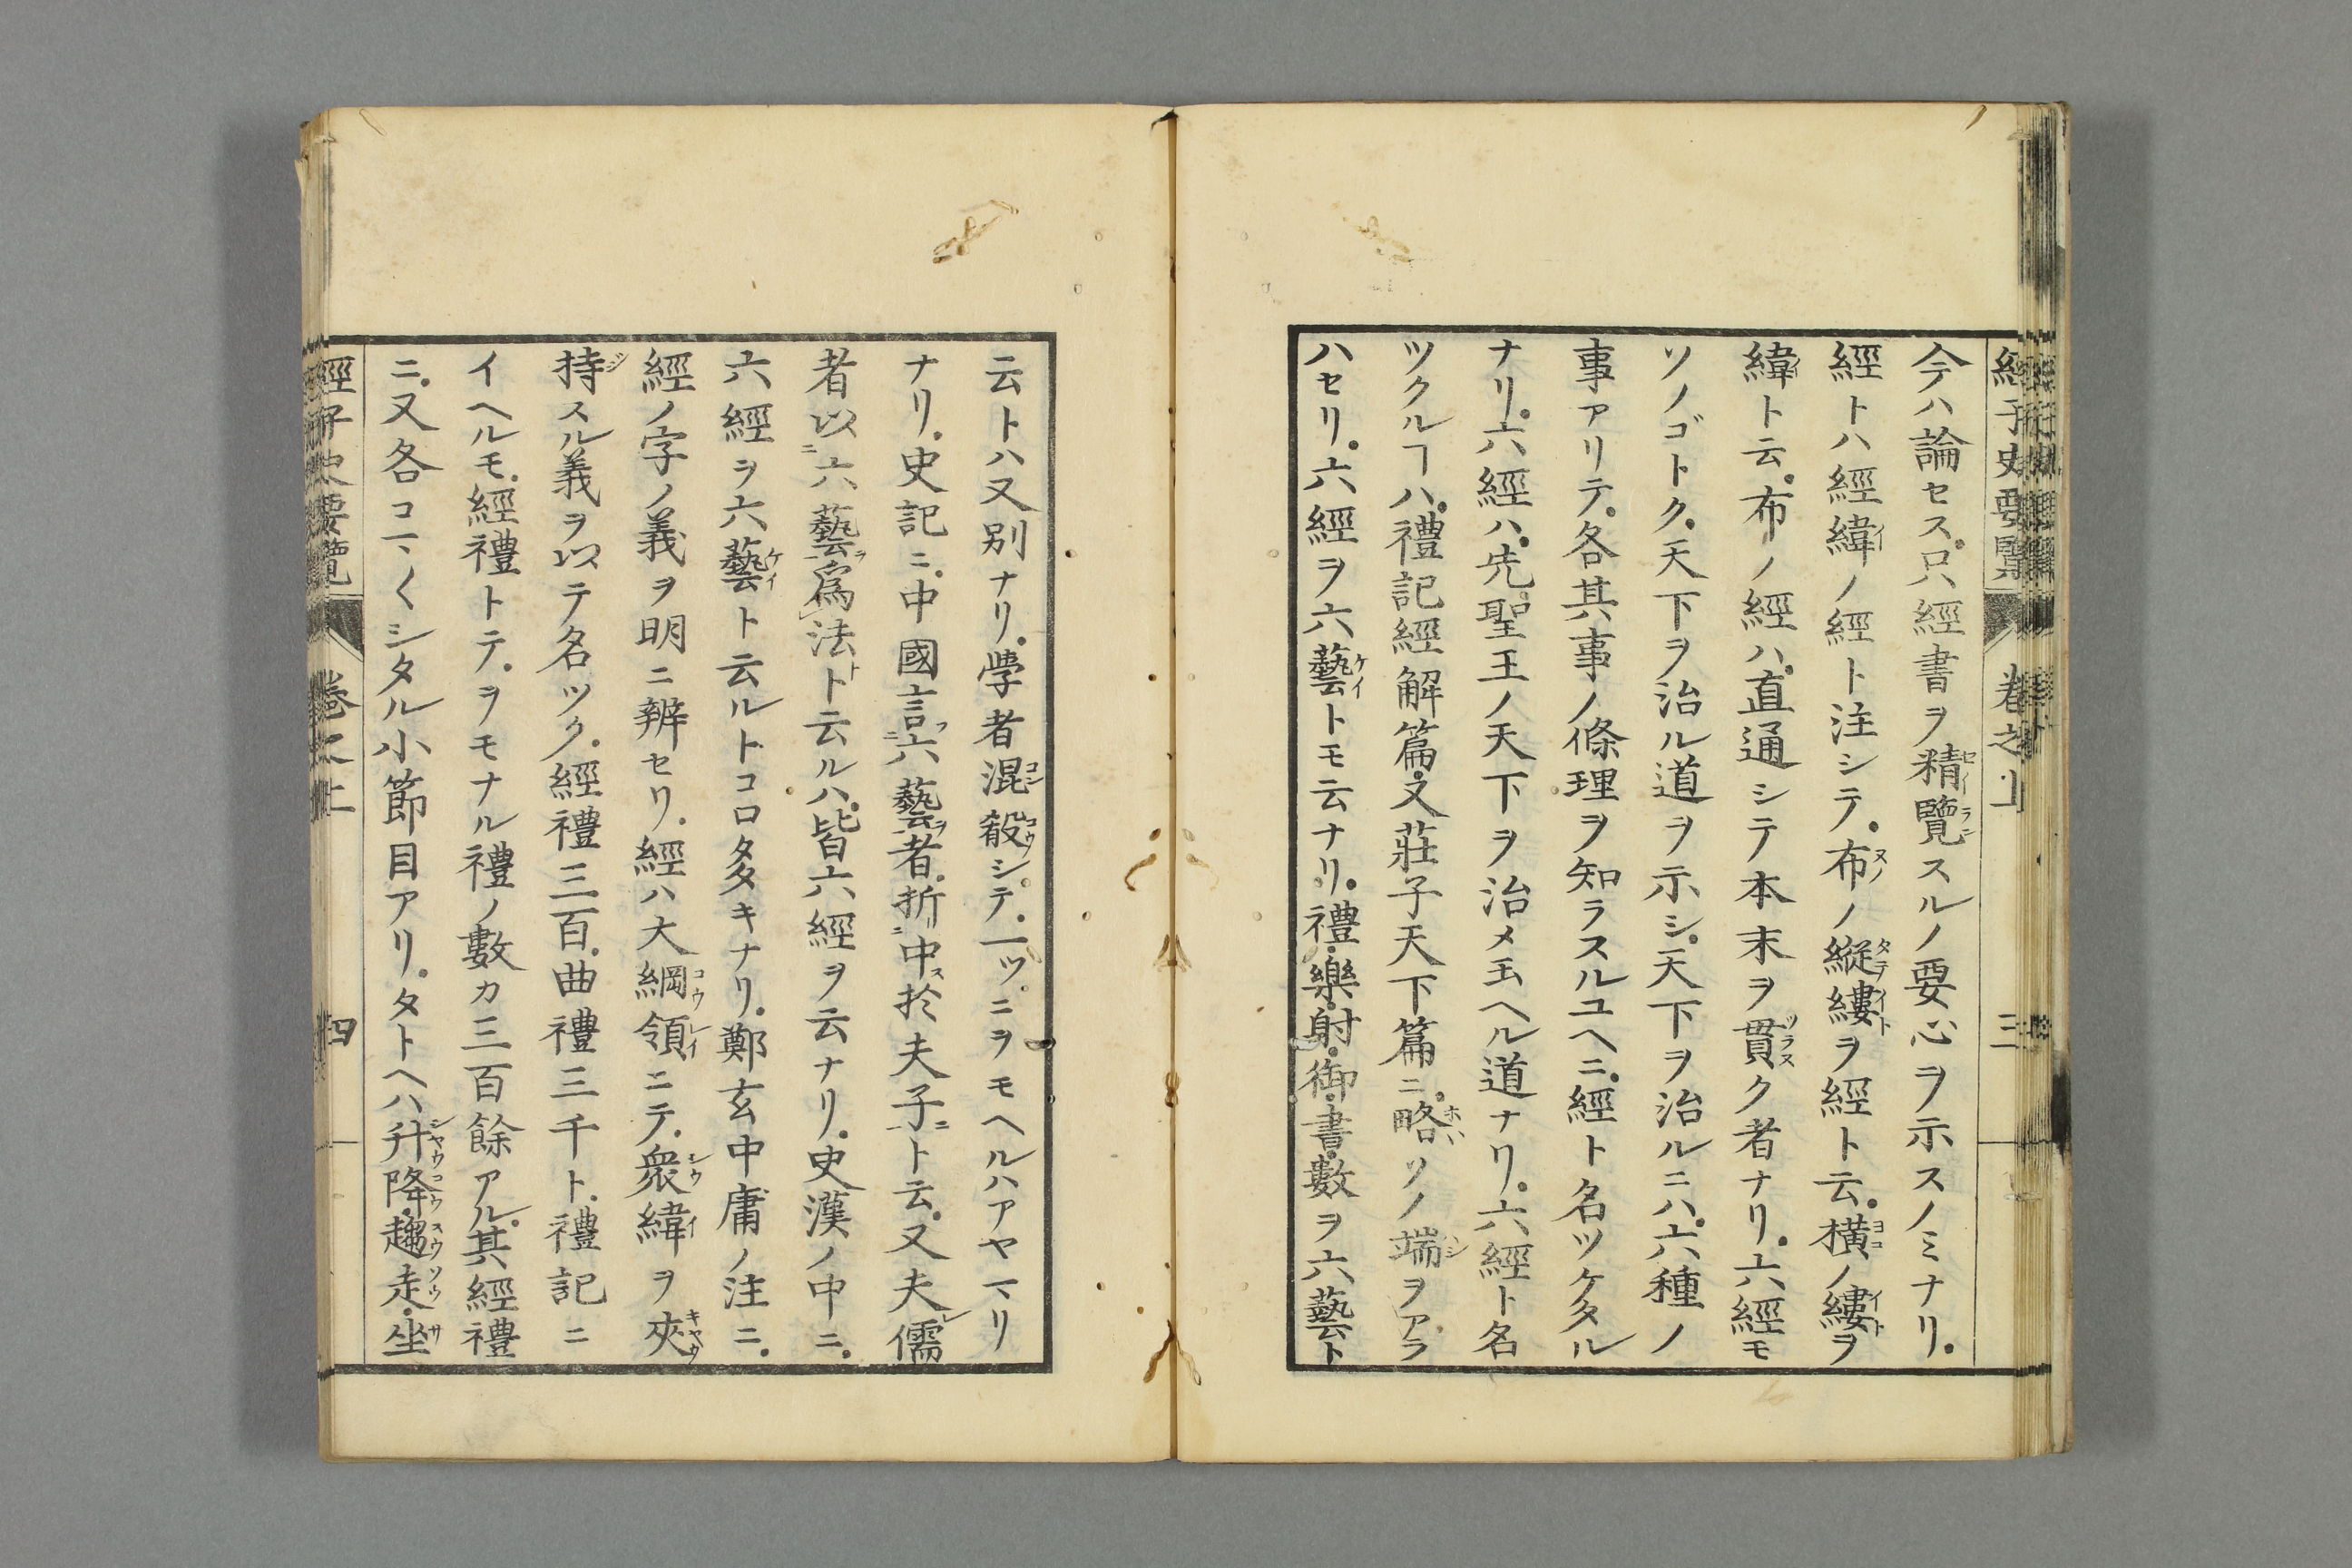 經子史要覽 卷之上 三
今ハ論セス。只經書ヲ精覽スルノ要心ヲ示スノミナリ。
經トハ經緯ノ經ト注シテ。布ノ縱縷ヲ經ト云。横ノ縷ヲ
緯ト云。布ノ經ハ。直通シテ本末ヲ貫ク者ナリ。六經モ
ソノゴトク。天下ヲ治ル道ヲ示シ。天下ヲ治ルニハ。六種ノ
事アリテ。各其事ノ條理ヲ知ラスルユヘニ。經ト名ツケタル
ナリ。六經ハ。先聖王ノ天下ヲ治メ玉ヘル道ナリ。六經ト名
ツクルヿハ。禮記經解篇。又莊子天下篇ニ。略ソノ端ヲアラ
ハセリ。六經ヲ六藝トモ云ナリ。禮。樂。射。御。書。數ヲ六藝ト
云トハ又別ナリ。學者混殽シテ。一ツニヲモヘルハアヤマリ
ナリ。史記ニ。中國言六藝者。折中於夫子ト云。又夫儒
者以六藝爲法ト云ルハ。皆六經ヲ云ナリ。史漢ノ中ニ。
六經ヲ六藝ト云ルトコロ多キナリ。鄭玄中庸ノ注ニ。
經ノ字ノ義ヲ明ニ辨セリ。經ハ大綱領ニテ。衆緯ヲ夾
持スル義ヲ以テ名ツク。經禮三百。曲禮三千ト。禮記ニ
イヘルモ。經禮トテ。ヲモナル禮ノ數カ三百餘アル。其經禮
ニ。又各コマ〱シタル小節目アリ。タトヘハ升降。趨走。坐
經子史要覽 卷之上 四